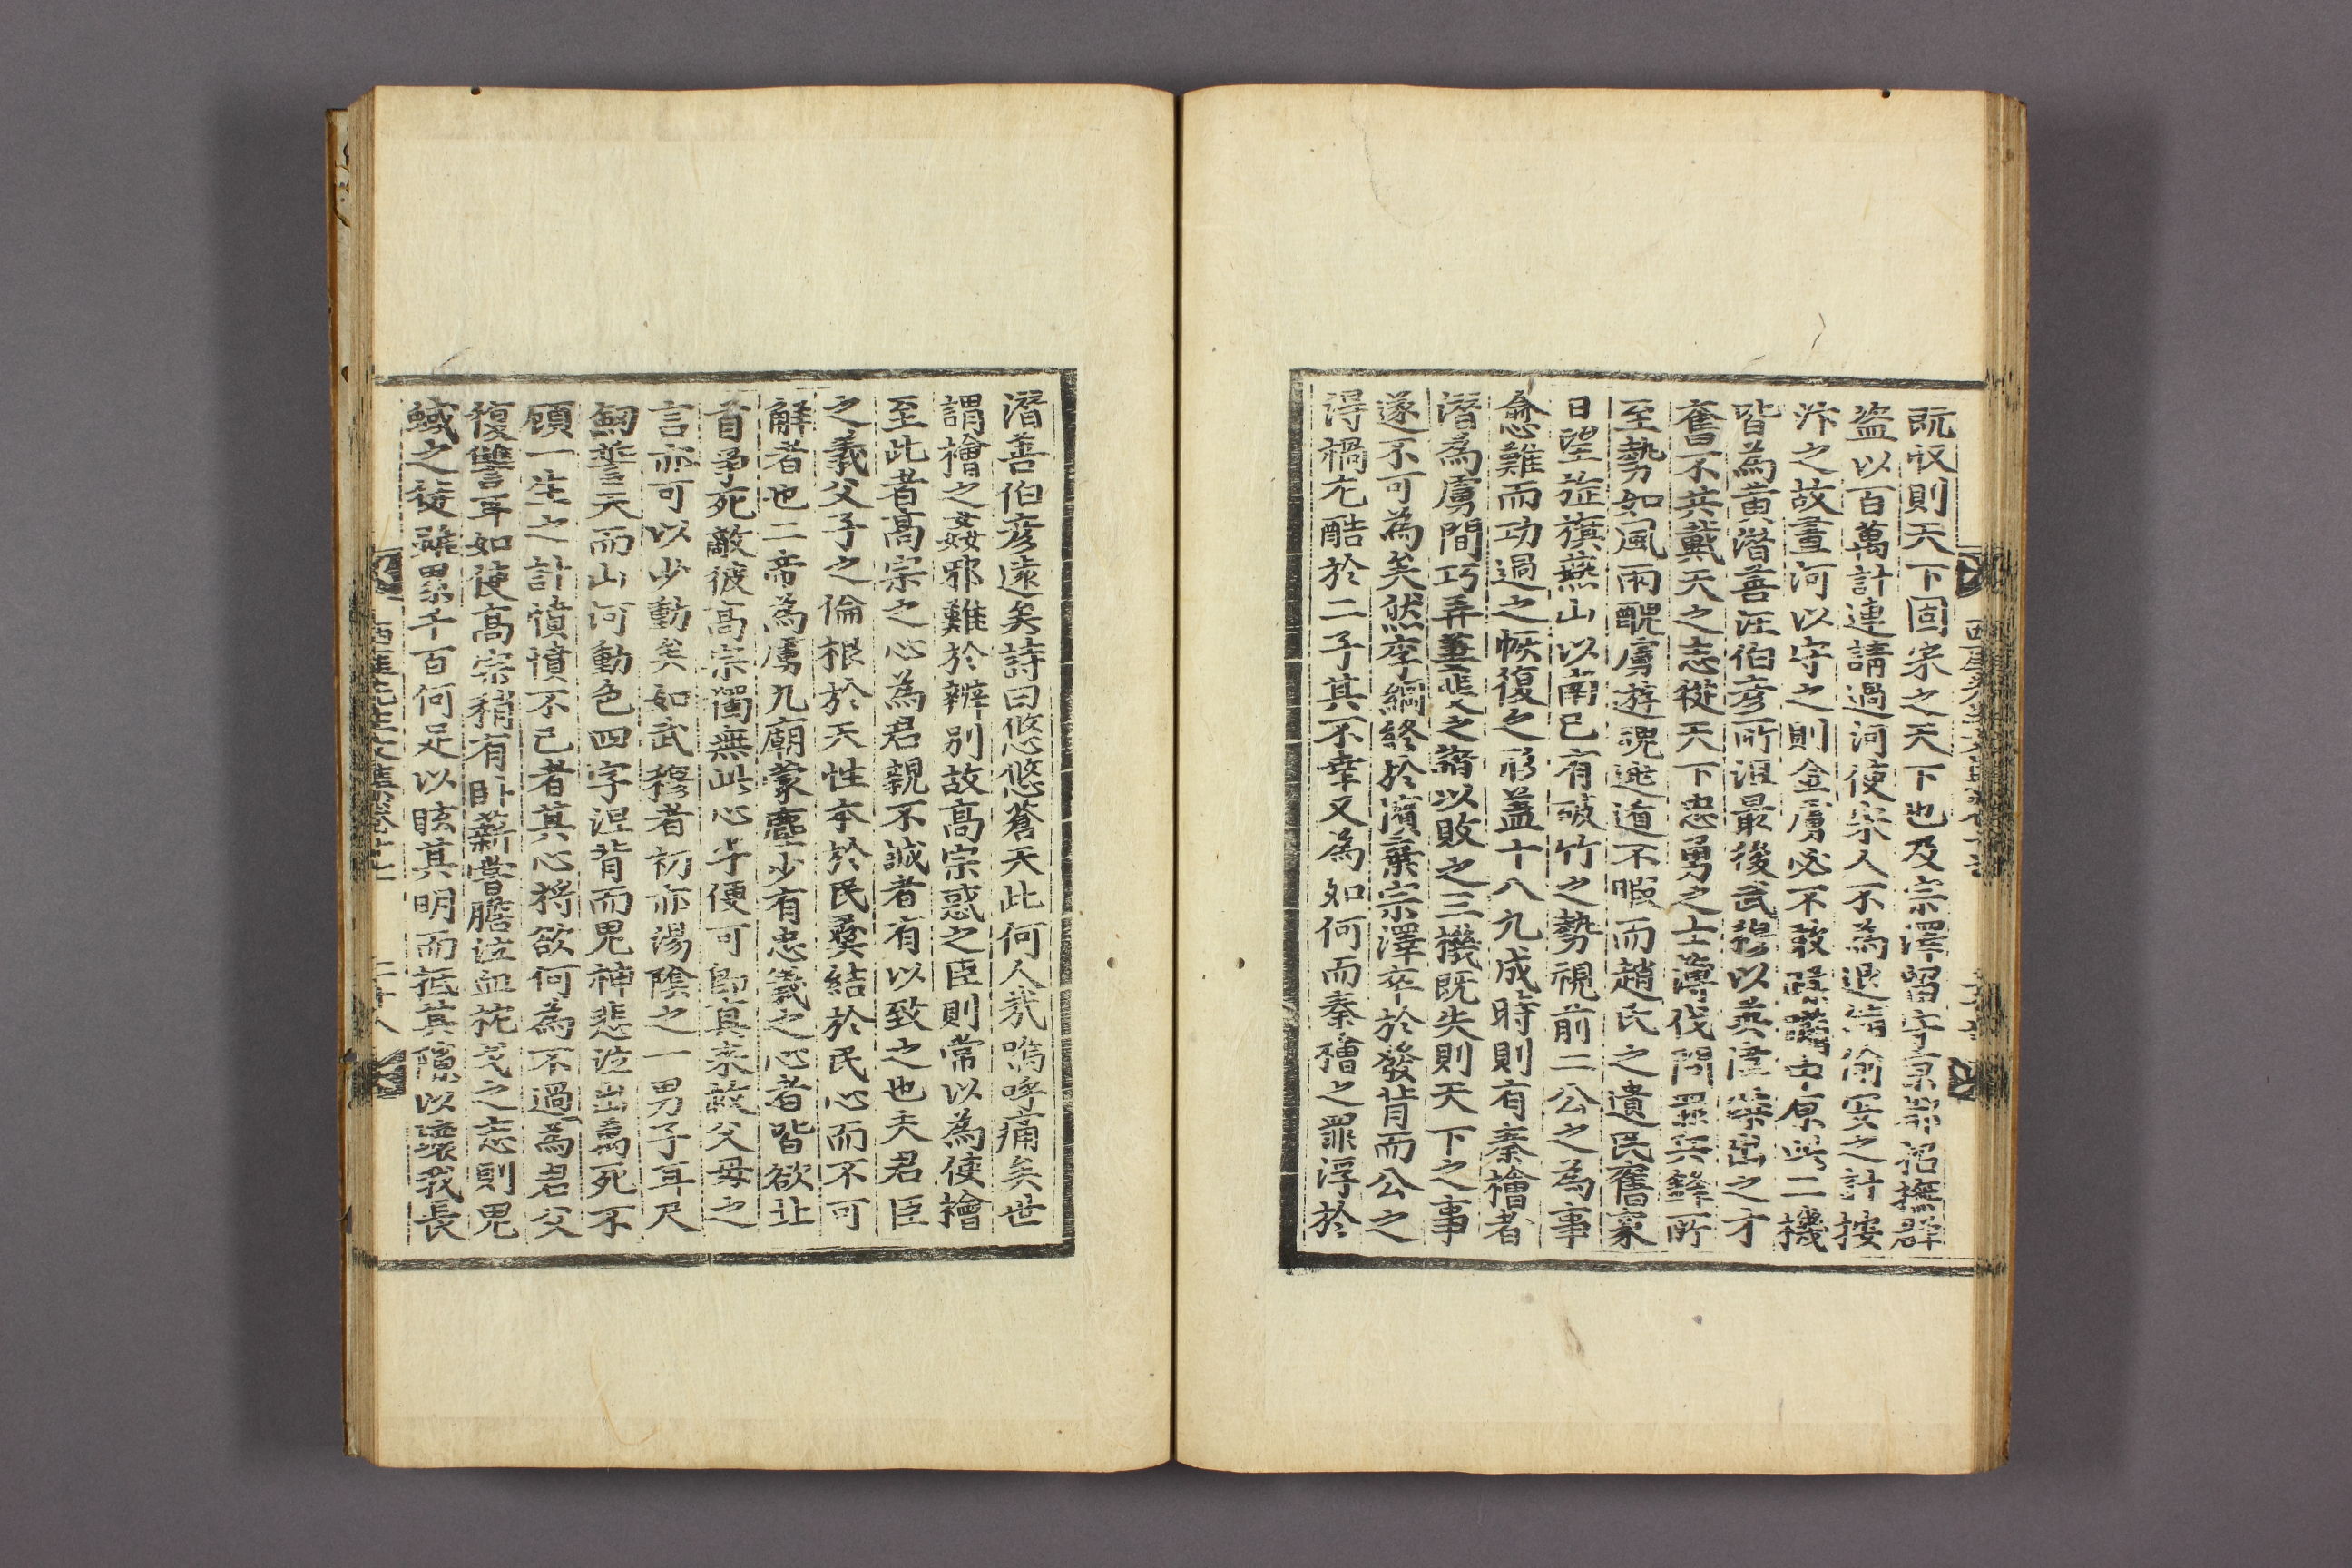 既収則天下固宋之天下也及宗澤留守京都招撫群
盜以百萬計連請過河使宋人不為退縮偷安之計按
汴之故畫河以守之則金虜必不敢蹂躪中原此二機
皆為黃潛善汪伯彦所沮最後武穆以英雄傑出之才
奮不共戴天之志從天下忠勇之士薄伐問罪兵鋒所
至勢如風雨醜虜遊魂逃遁不暇而趙氏之遺民舊家
日望旌旗燕山以南已有破竹之勢視前二公之為事
愈難而功過之恢復之形盖十八九成時則有秦檜者
潛為虜間巧弄萋斐之譖以敗之三機既失則天下之事
遂不可為矣然李綱終於濱棄宗澤卒於發背而公之
得禍尤酷於二子其不幸又為如何而秦檜之罪浮於
潛善伯彦遠矣詩曰悠悠蒼天此何人㦲嗚呼痛矣世
謂檜之姦邪難於辨別故高宗惑之臣則常以為使檜
至此者高宗之心為君親不誠者有以致之也夫君臣
之義父子之倫根於天性本於民彛結於民心而不可
解者也二帝為虜九廟蒙塵少有忠義之心者皆欲北
首爭死敵彼高宗獨無此心乎便可即真來赦父母之
言亦可以少動矣如武穆者初亦湯陰之一男子耳尺
劒誓天而山河動色四字涅背而鬼神悲泣出萬死不
顧一生之計憤憤不已者其心將欲何為不過為君父
復讐耳如使高宗稍有卧薪嘗膽泣血枕戈之志則鬼
蜮之徒雖累千百何足以眩其明而抵其隱以壞我長
西厓先生文集卷
二十八